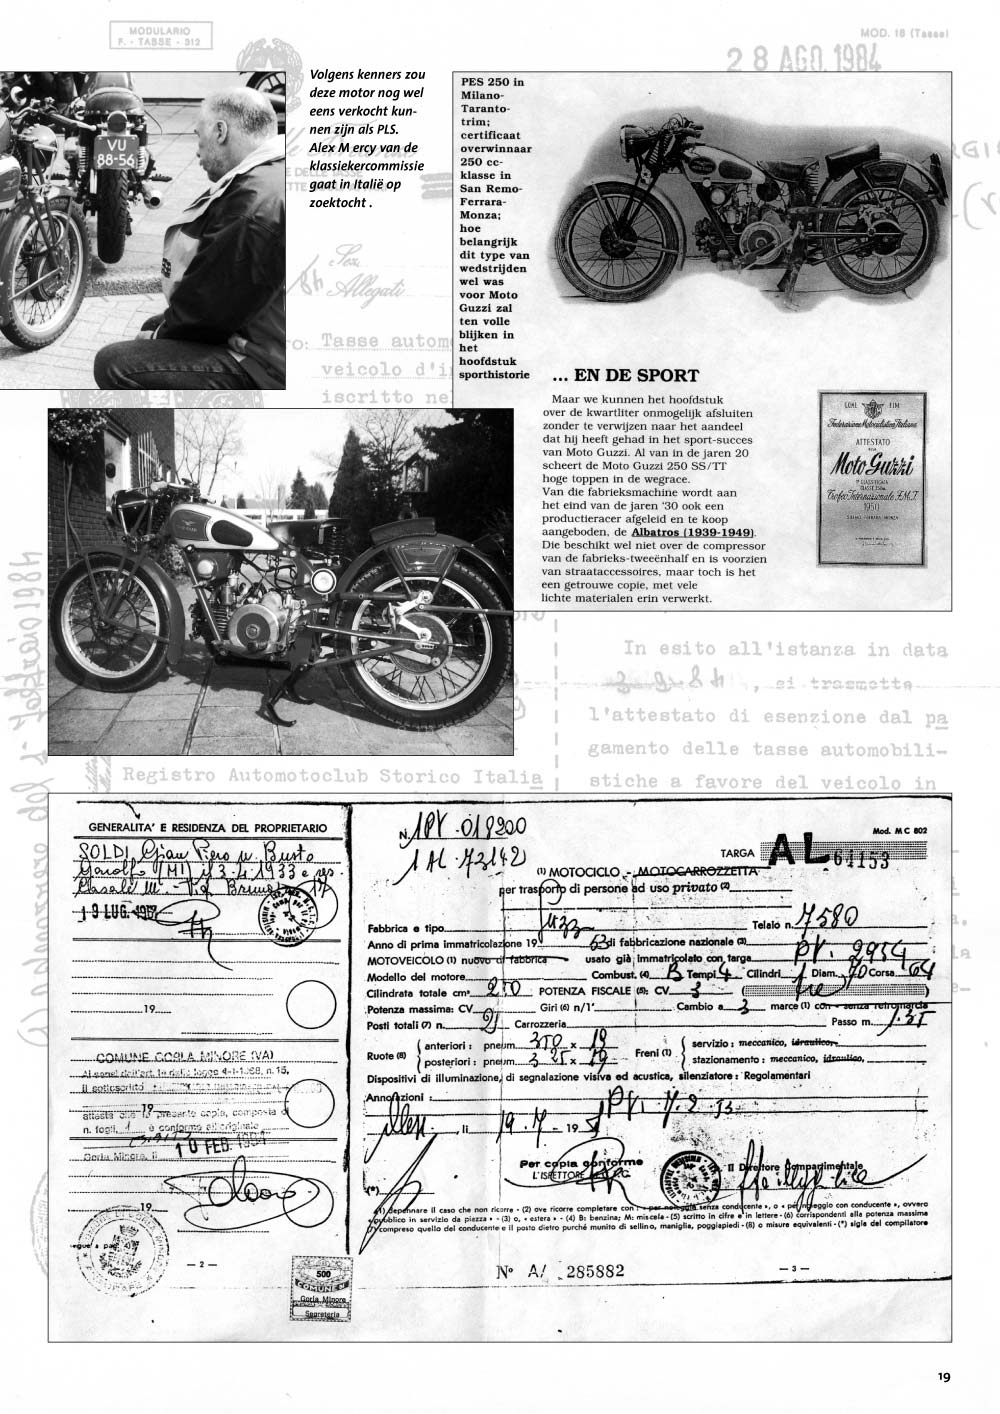 MODULARIO
F. - TASSE - 312
MOD. 18 (Tasse)
28 AGO. 1984
Volgens kenners zou
deze motor nog wel
eens verkocht kun-
nen zijn als PLS.
Alex M ercy van de
klassiekercommissie
gaat in Italië op
zoektocht .
VU
88-56
Sez.
Allegati
Tasse autom
veicolo d'i
iscritto ne
PES 250 in
Milano-
Taranto-
trim;
certificaat
overwinnaar
250 cc-
klasse in
San Remo-
Ferrara-
Monza;
hoe
belangrijk
dit type van
wedstrijden
wel was
voor Moto
Guzzi zal
ten volle
blijken in
het
hoofdstuk
sporthistorie
... EN DE SPORT
Maar we kunnen het hoofdstuk
over de kwartliter onmogelijk afsluiten
zonder te verwijzen naar het aandeel
dat hij heeft gehad in het sport-succes
van Moto Guzzi. Al van in de jaren 20
scheert de Moto Guzzi 250 SS/TT
hoge toppen in de wegrace.
Van die fabrieksmachine wordt aan
het eind van de jaren '30 ook een
productieracer afgeleid en te koop
aangeboden, de Albatros (1939-1949).
Die beschikt wel niet over de compressor
van de fabrieks-tweeënhalf en is voorzien
van straataccessoires, maar toch is het
een getrouwe copie, met vele
lichte materialen erin verwerkt.
CONI FIM
Federazione Motociclistica Italiana
ATTESTATO
Moto Guzzi
1ª CLASSIFICATA
CLASSE 250
Trofeo Internazionale F.M.I.
1950
In esito all'istanza in data
3-9-84 , si trasmette
l'attestato di esenzione dal pa
gamento delle tasse automobili-
stiche a favore del veicolo in
Registro Automotoclub Storico Italia
GENERALITA' E RESIDENZA DEL PROPRIETARIO
SOLDI Gian Piero n. Busto
Garolfo (MI) il 3.4.1933 e res.
Casale M. - Via
19 LUG. 1967
19
COMUNE GORLA MINORE (VA)
Ai sensi dell'art. 14 della legge 4-1-1968, n. 15,
il sottoscritto
19
attesta che la presente copia, composta di
n. fogli 1 è conforme all'originale
Gorla Minore, li 10 FEB.
19
segue a pag. 4)
— 2 —
500
COMUNE DI
Gorla Minore
Segreteria
N. 1PV.019200
1 AL.73142
Mod. M C 802
TARGA AL 64153
(1) MOTOCICLO - MOTOCARROZZETTA
per trasporto di persone ad uso privato (2)
Fabbrica e tipo Guzzi Telaio n. 7580
Anno di prima immatricolazione 19 53 di fabbricazione nazionale (3)
MOTOVEICOLO (1) nuovo di fabbrica usato già immatricolato con targa PV. 2954
Modello del motore Combust. (4) B Tempi 4 Cilindri 1 Diam. 70 Corsa 64
Cilindrata totale cm³ 250 POTENZA FISCALE (5): CV 3 (tre)
Potenza massima: CV Giri (6) n/1' Cambio a 3 marce (1) con - senza retromarcia
Posti totali (7) n. 2 Carrozzeria Passo m. 1.35
Ruote (8) anteriori: pneum. 350 x 19 Freni (1) servizio: meccanico, idraulico,
posteriori: pneum. 3 25 x 19 stazionamento: meccanico, idraulico,
Dispositivi di illuminazione, di segnalazione visiva ed acustica, silenziatore: Regolamentari
Annotazioni: PV. 7.2.53
Aless, li 19.7 - 19
Per copia conforme
L'ISPETTORE
Il Direttore Compartimentale
(*)
(1) depennare il caso che non ricorre - (2) ove ricorre completare con: « per noleggio senza conducente », o « per noleggio con conducente », ovvero
« pubblico in servizio da piazza » - (3) o, « estera » - (4) B: benzina; M: miscela - (5) scritto in cifre e in lettere - (6) corrispondenti alla potenza massima
(7) compreso quello del conducente e il posto dietro purché munito di sellino, maniglia, poggiapiedi - (8) o misure equivalenti - (*) sigla del compilatore
N° A/ 285882
— 3 —
19